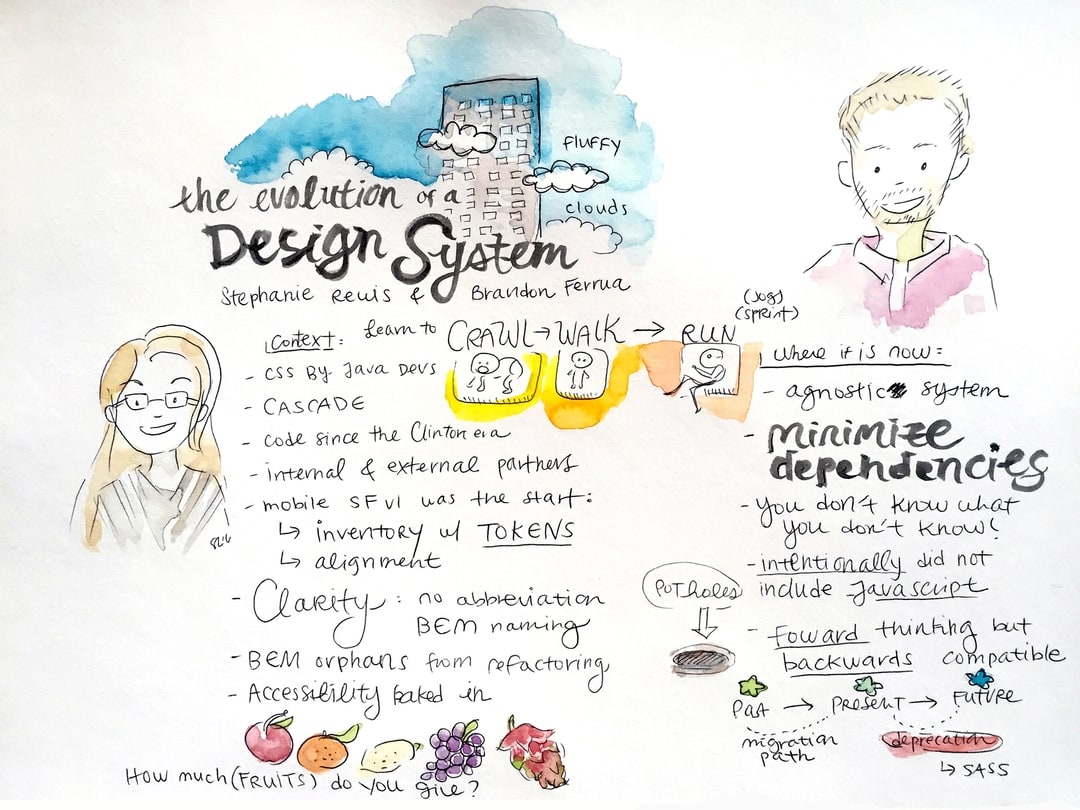 fluffy
clouds
the evolution of a
Design System
Stephanie Rewis & Brandon Ferrua
Context: Learn to CRAWL → WALK → RUN
(jog)
(sprint)
- CSS By Java Devs
- CASCADE
- code since the Clinton era
- internal & external partners
- mobile SFv1 was the start:
↳ inventory w/ TOKENS
↳ alignment
- Clarity: no abbreviation
BEM naming
- BEM orphans from refactoring
- Accessibility baked in
How much (FRUITS) do you give?
where it is now:
- agnostic system
- minimize
dependencies
- you don't know what
you don't know!
- intentionally did not
include Javascript
POTholes
- Foward thinking but
backwards compatible
Past → PRESENT → FUTURE
migration
path
deprecation
↳ SASS